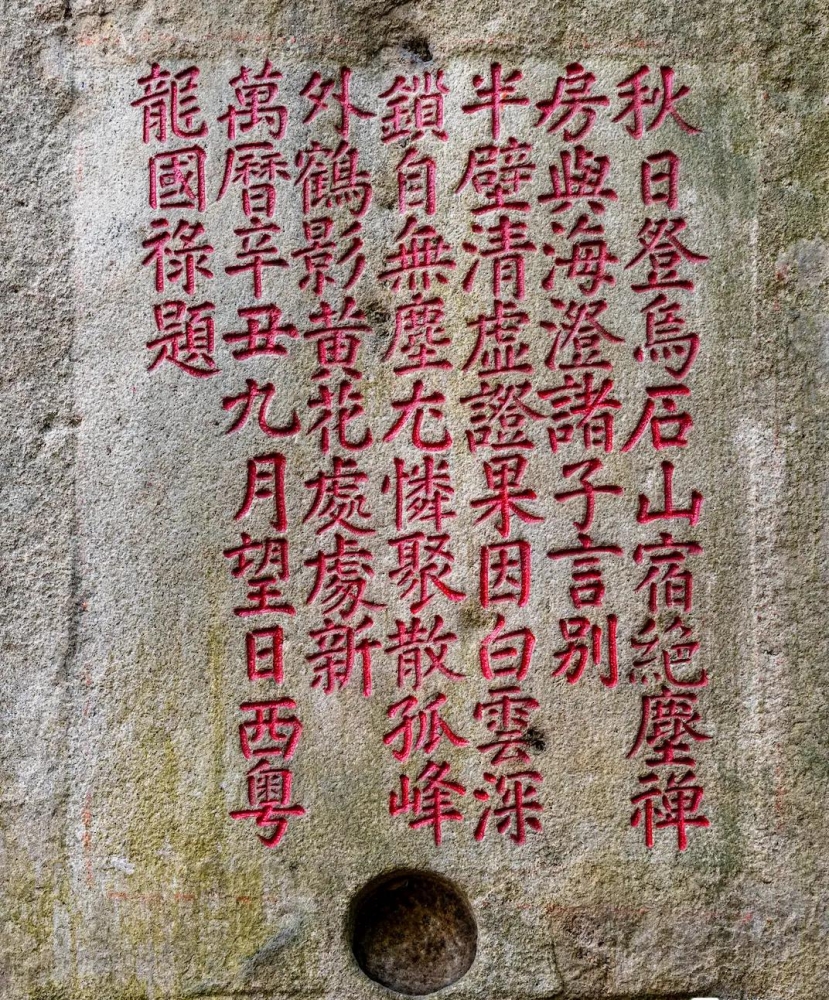 秋日登烏石山宿絶塵禅
房與海澄諸子言别
半壁清虛證果因白雲深
鎖自無塵尤憐聚散孤峰
外鶴影黄花處處新
萬曆辛丑九月望日西粤
龍國祿題